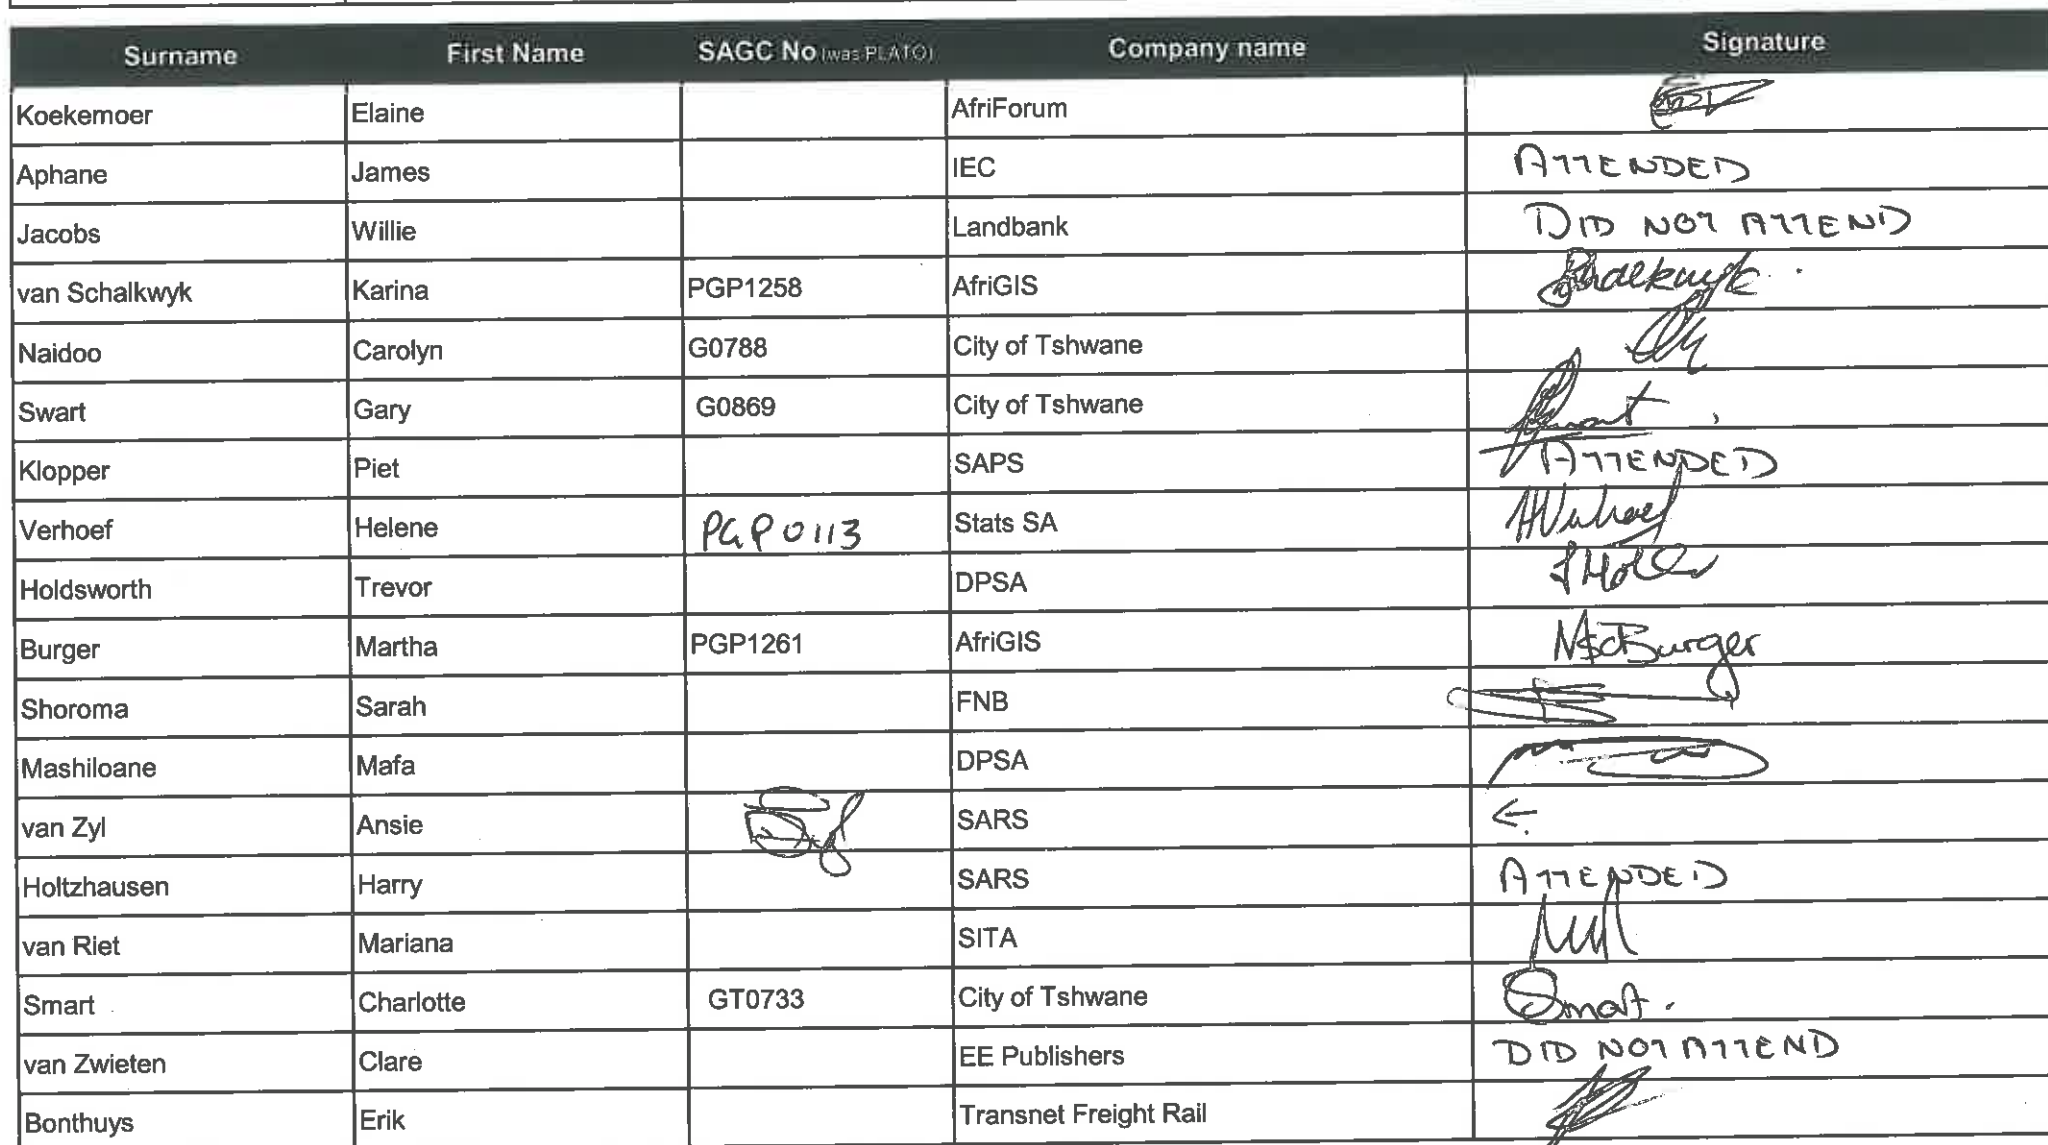 Surname First Name SAGC No (was PLATO) Company name Signature
Koekemoer Elaine AfriForum
Aphane James IEC ATTENDED
Jacobs Willie Landbank DID NOT ATTEND
van Schalkwyk Karina PGP1258 AfriGIS Schalkwyk
Naidoo Carolyn G0788 City of Tshwane
Swart Gary G0869 City of Tshwane Swart
Klopper Piet SAPS ATTENDED
Verhoef Helene PGP0113 Stats SA HVerhoef
Holdsworth Trevor DPSA
Burger Martha PGP1261 AfriGIS Burger
Shoroma Sarah FNB
Mashiloane Mafa DPSA
van Zyl Ansie SARS ←
Holtzhausen Harry SARS ATTENDED
van Riet Mariana SITA
Smart Charlotte GT0733 City of Tshwane Smart.
van Zwieten Clare EE Publishers DID NOT ATTEND
Bonthuys Erik Transnet Freight Rail